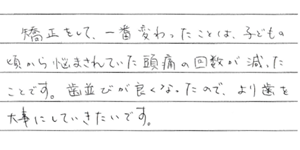 矯正をして、一番変わったことは、子どもの
頃から悩まされていた頭痛の回数が減った
ことです。歯並びが良くなったので、より歯を
大事にしていきたいです。